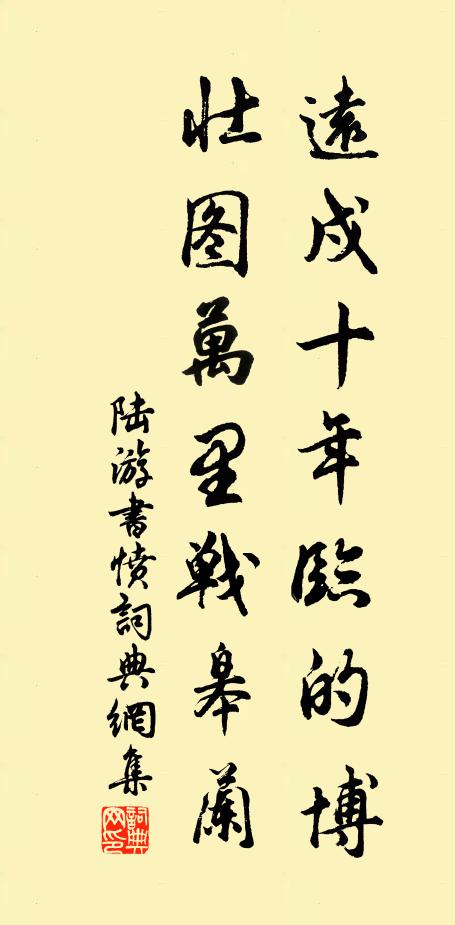 遠戍十年臨的博
壯图萬里戰皋蘭
陆游書憤詞典網集
詞典网印